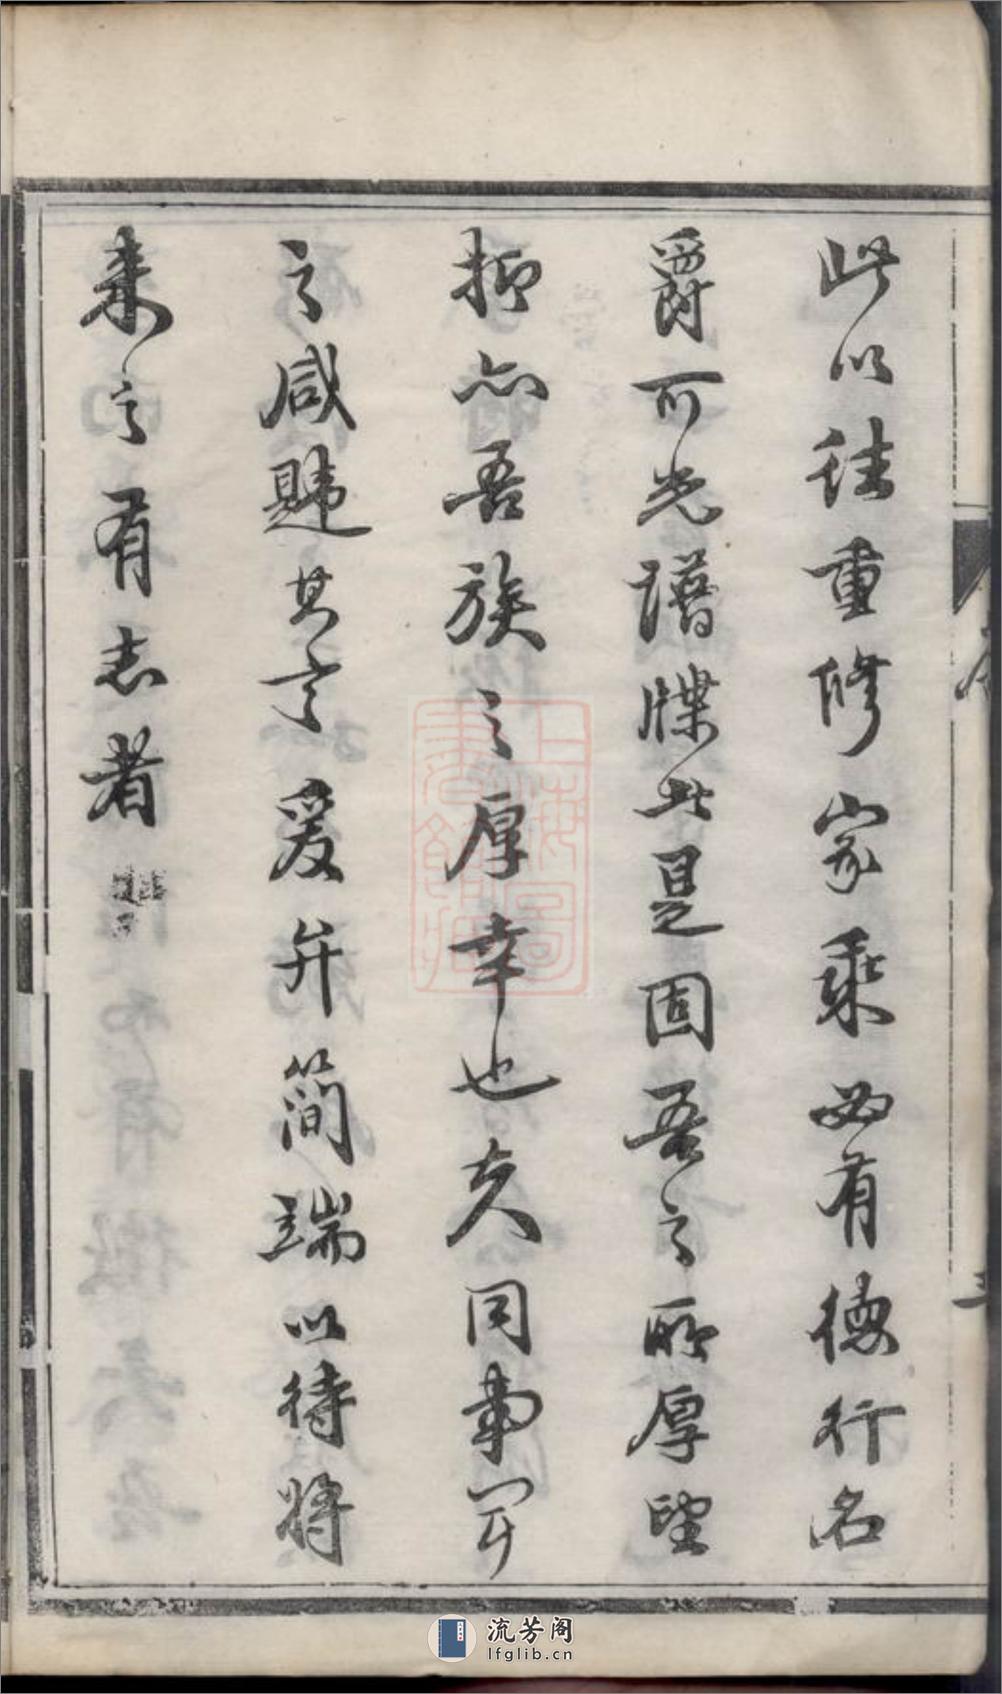 此以往重修家乘必有德行名
爵可光譜牒者是固吾之所厚望
抑亦吾族之厚幸也夫同事聞
之咸韙其言爰弁簡端以待將
來之有志者
序
三
上海圖書館藏
流芳阁
lfglib.cn